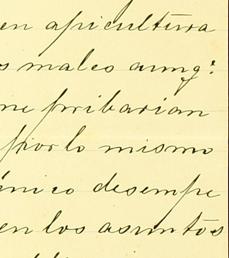 en apicultura
s males aunq.e
me pribarian
por lo mismo
único desempe
en los asuntos